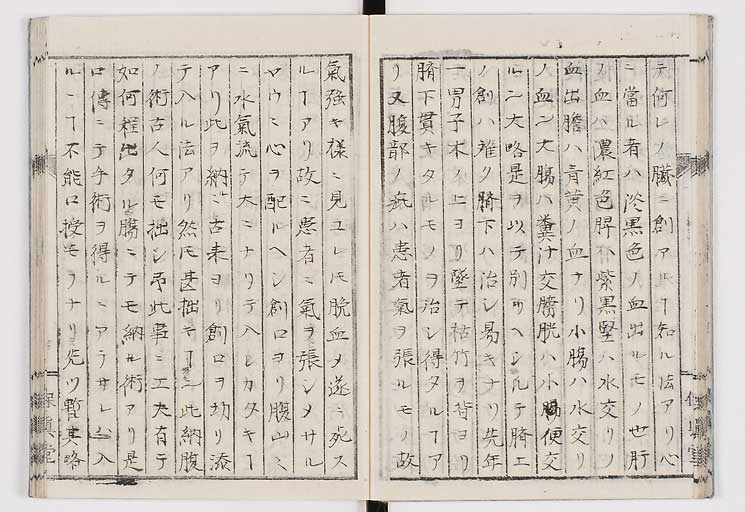 テ何レノ臓ニ創アルヿ知ル法アリ心
ニ當ル者ハ淡黒色ノ血出ルモノ也肝
ノ血ハ濃紅色脾ハ紫黒腎ハ水交リノ
血出膽ハ青黄ノ血ナリ小腸ハ水交リ
ノ血ニ大腸ハ糞汁交膀胱ハ小便交
ルニ大略是ヲ以テ別ツヘシ凡テ臍上
ノ創ハ難ク臍下ハ治シ易キナリ先年
一男子木ノ上ヨリ墜テ枯竹ヲ背ヨリ
臍下貫キタルモノヲ治シ得タルヿア
リ又腹部ノ疵ハ患者氣ヲ張ルモノ故
氣強キ様ニ見ユレ𪜈脱血メ遂ニ死ス
ルヿアリ故ニ患者ニ氣ヲ張シメサル
ヤウニ心ヲ配ルヘシ創口ヨリ腹山ミ
ニ水氣流テ大ニナリテ入レカタキヿ
アリ此ヲ納ニ古来ヨリ創口ヲ切リ添
テ入ル法アリ然𪜈甚拙キヿ也此納腹
ノ術古人何モ拙シ吊此事ニ工夫有テ
如何程出タル腸ニテモ納ル術アリ是
口傳ニテ手術ヲ得ルニアラサレハ入
ルヿ不能口授モヲナリ先ツ暫其略
保真堂